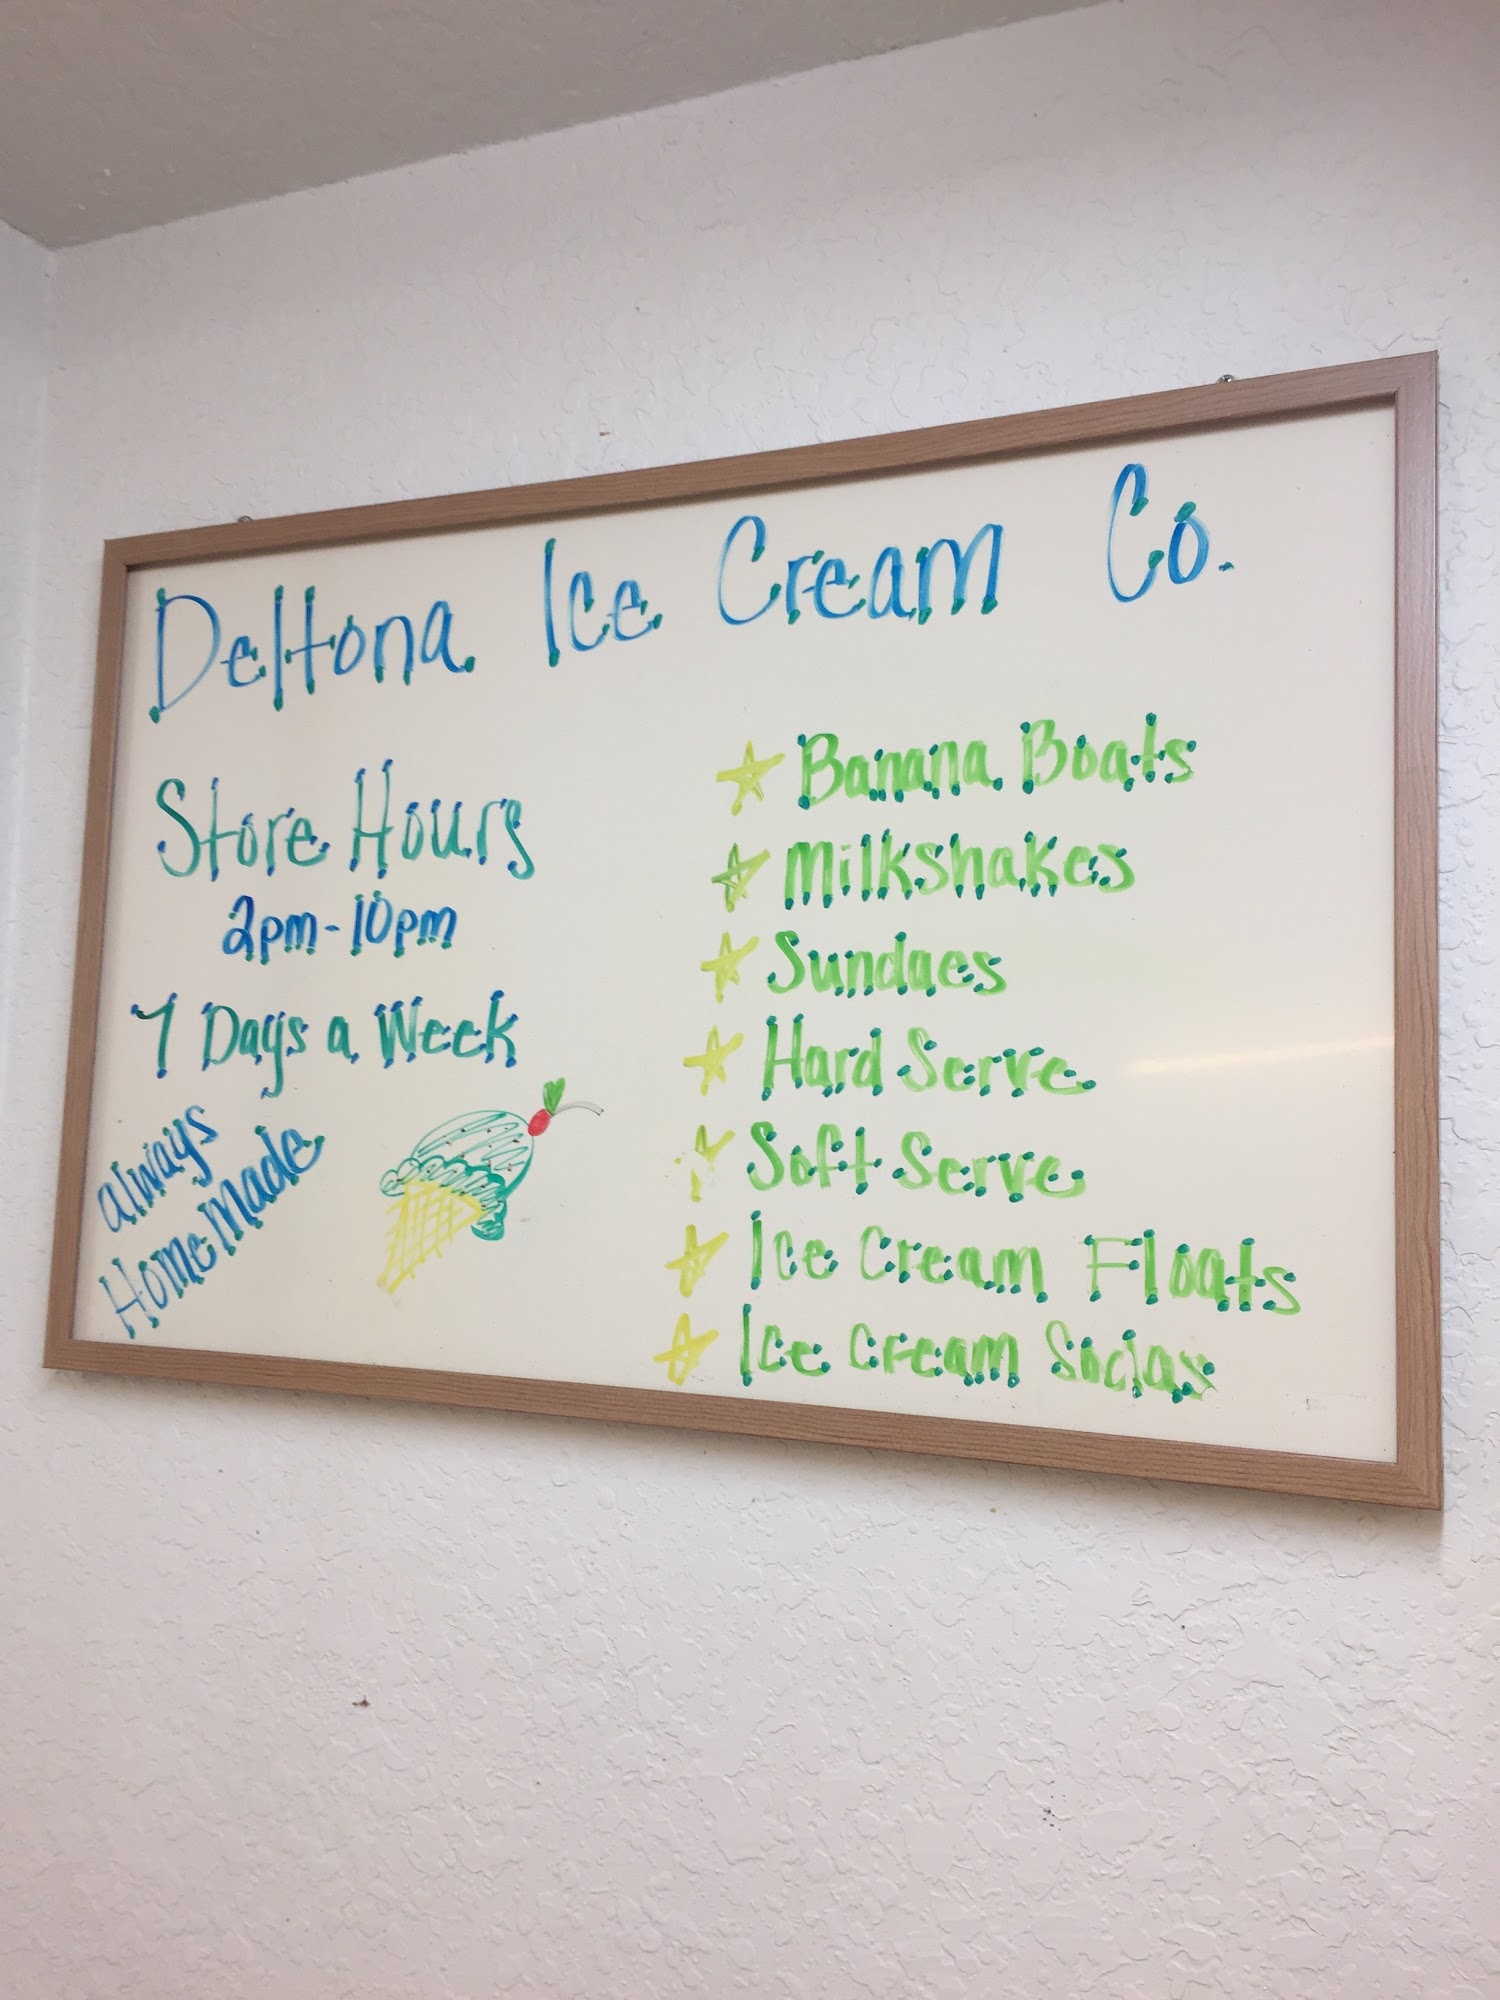 Deltona Ice Cream Co.
Store Hours
2pm-10pm
7 Days a Week
always
HomeMade
Banana Boats
Milkshakes
Sundaes
Hard Serve
Soft Serve
Ice Cream Floats
Ice Cream Socias